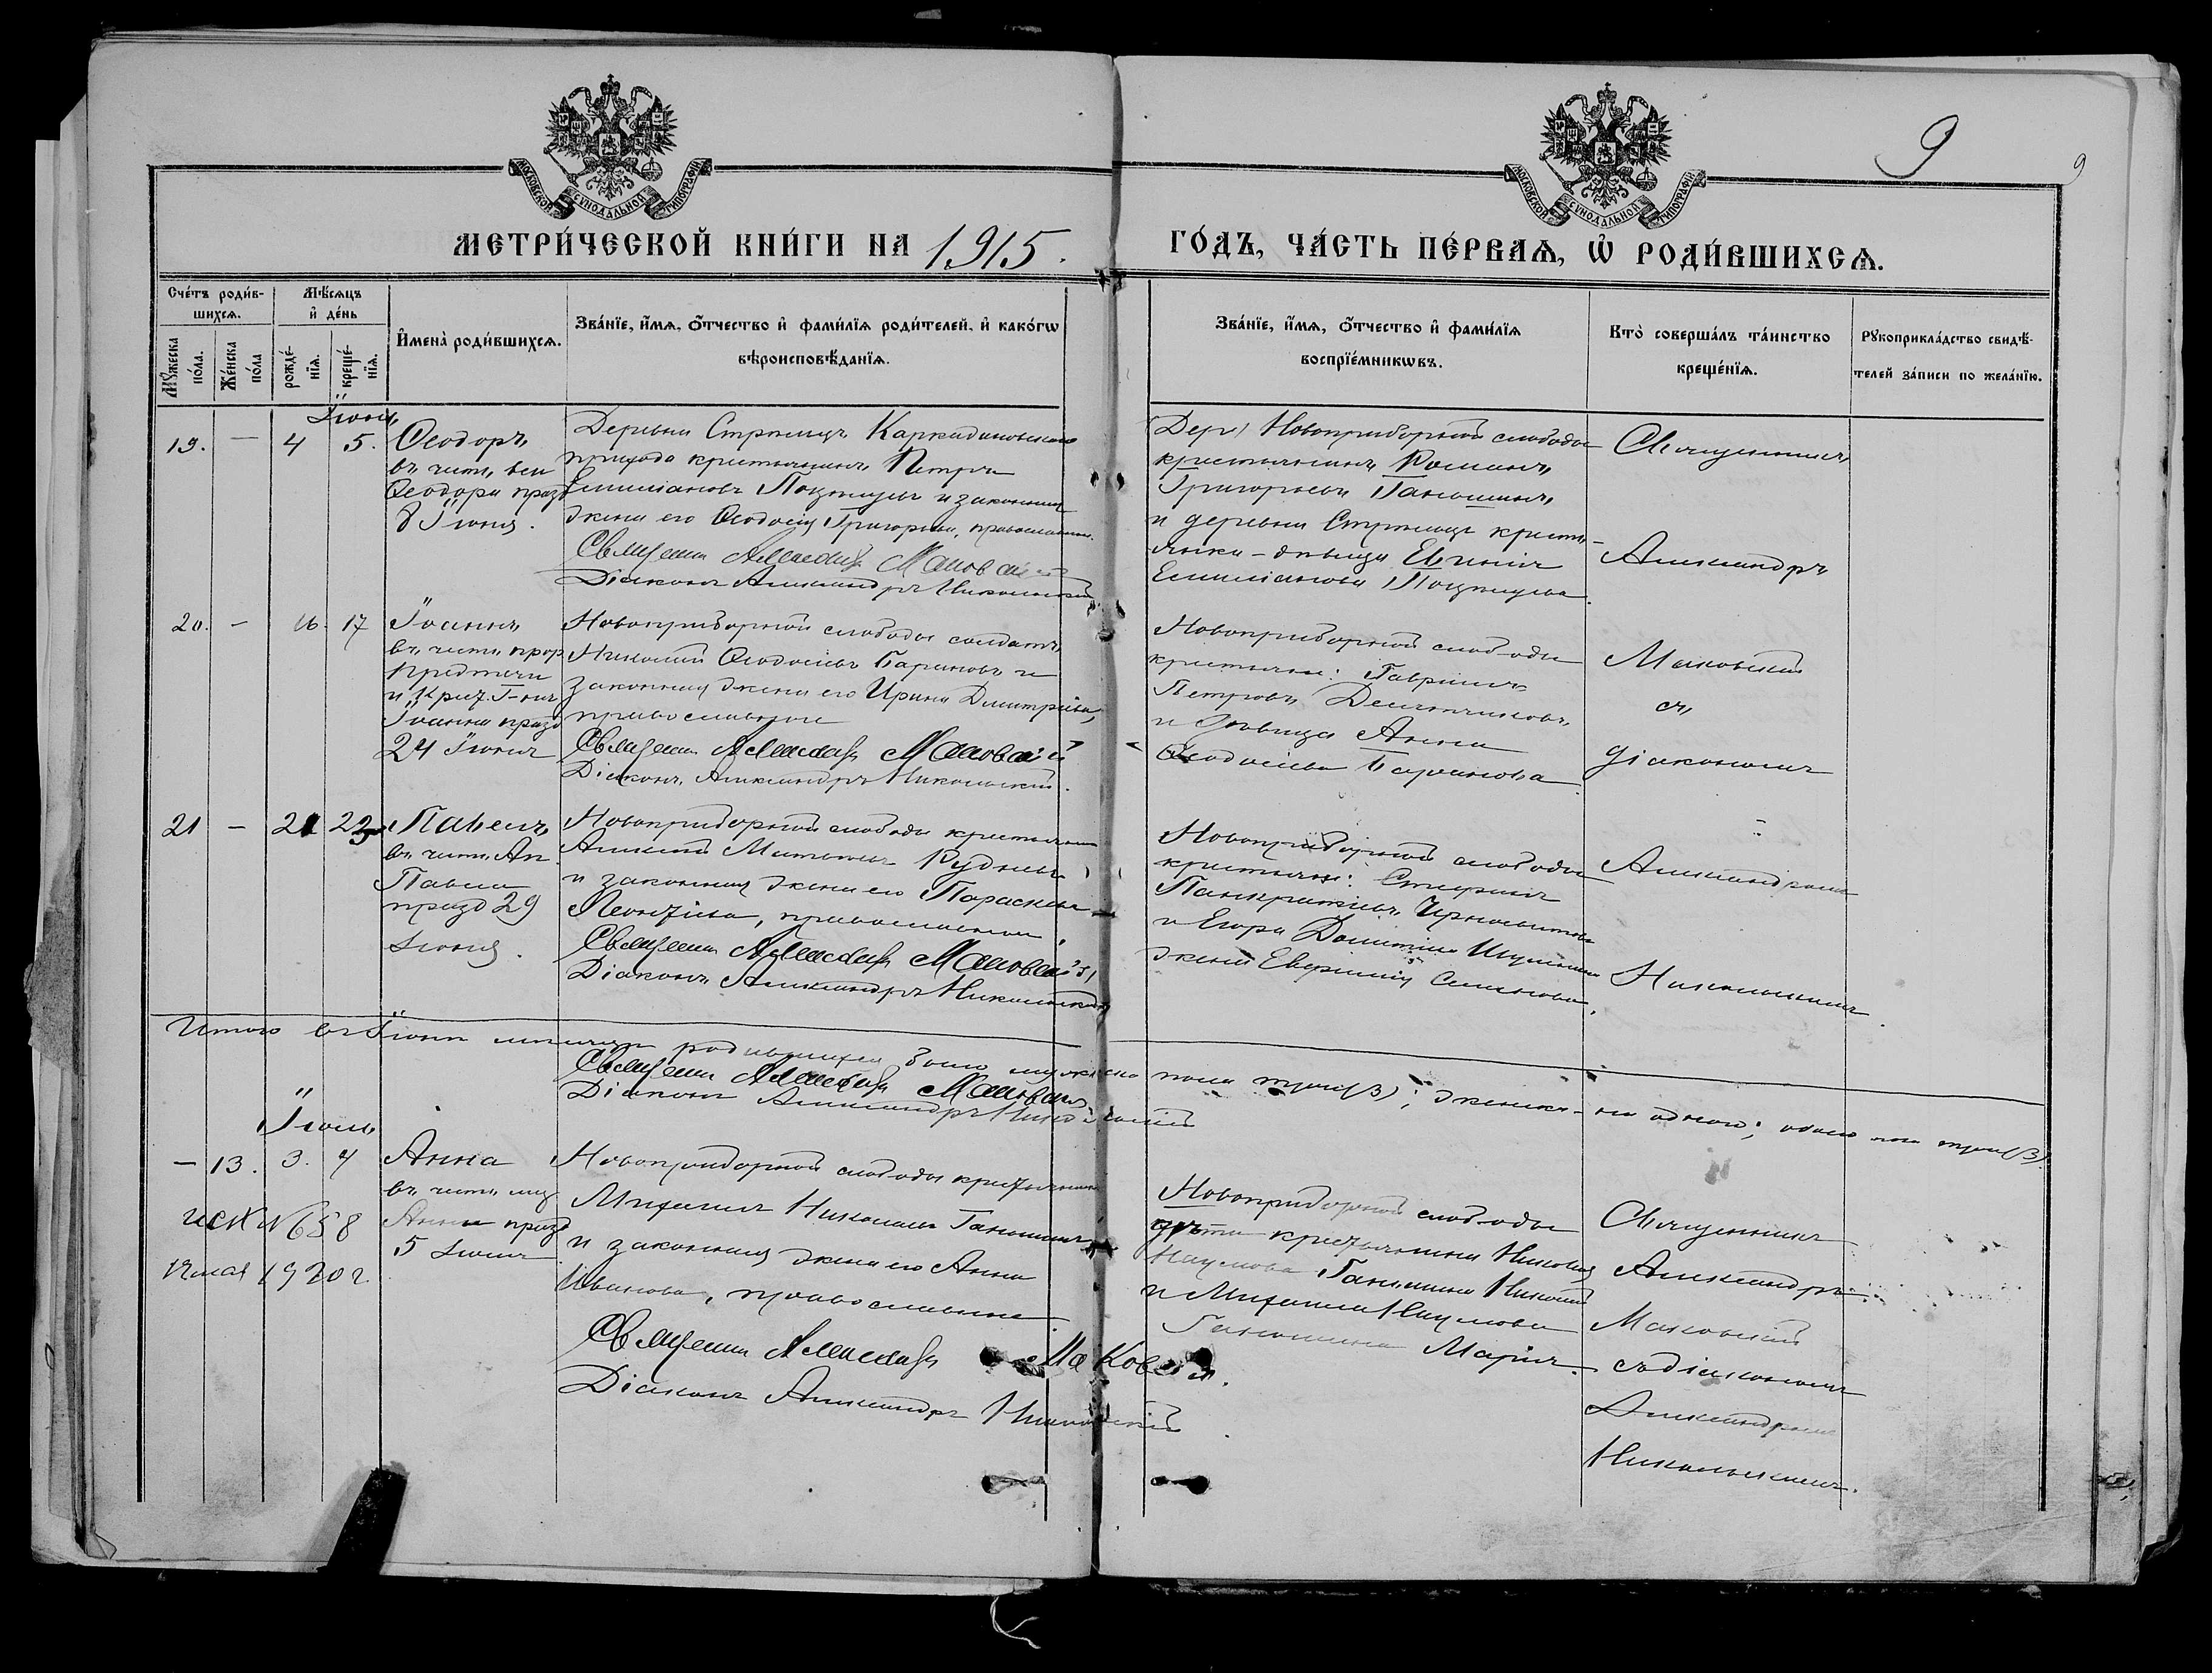 9
9
МОСКОВСКОЙ СУНОДАЛЬНОЙ ТИПОГРАФІИ
МОСКОВСКОЙ СУНОДАЛЬНОЙ ТИПОГРАФІИ
МЕТРИ́ЧЕСКОЙ КНИ́ГИ НА 1915.
ГО́ДЪ, ЧА́СТЬ ПЕ́РВАѦ, Ѡ҆ РОДИ́ВШИХСѦ.
Сче́тъ роди́в-
шихсѧ.
Мѣ́сѧцъ
и҆ де́нь
И҆мена̀ роди́вшихсѧ.
Зва́нїе, и҆́мѧ, ѻ҆́тчество и҆ фами́лїѧ роди́телей, и҆ како́гѡ
вѣроисповѣ́данїѧ.
Мꙋ́жеска
по́ла.
Же́нска
по́ла
рожде́-
нїѧ.
креще́-
нїѧ.
Зва́нїе, и҆́мѧ, ѻ҆́тчество и҆ фами́лїѧ
воспрїе́мникѡвъ.
Кто̀ соверша́лъ та́инство
креще́нїѧ.
Рꙋкоприкла́дство свидѣ́-
телей за́писи по жела́нїю.
Іюнь
19. — 4 5.
Ѳеодоръ
въ честь вел
Ѳеодора празд
8 Іюня.
Деревни Стрѣлицъ Каркадиновскаго
прихода крестьянинъ Петръ
Емиліановъ и законная
жена его Ѳеодосія Григорьева, православные.
Священн Александръ Маковскій
Діаконъ Александръ Никольскій.
Дер) Новоприборной слободы
крестьянинъ Романъ
Григорьевъ Ганьшинъ
и деревни Стрѣлицъ кресть-
янка - дѣвица
Емиліанова
Священникъ
Александръ
20. — 16. 17
Іоаннъ
въ честь прор
Предтечи
и Крест. Г-ня
Іоанна празд
24 Іюня
Новоприборной слободы солдатъ
Николай Ѳеодосіевъ Бариновъ и
законная жена его Ирина Димитріева,
православные
Священн Александръ Маковскій
Діаконъ Александръ Никольскій.
Новоприборной слободы
крестьяне: Гавріилъ
Петровъ
и дѣвица Анна
Ѳеодосіева Баринова.
Маковскій
съ
діакономъ
21 — 21 23
Павелъ
въ честь Ап.
Павла
празд 29
Іюня.
Новоприборной слободы крестьянинъ
Алексій Рудневъ
и законная жена его Параскева
Леонтіева, православные.
Священн Александръ Маковскій
Діаконъ Александръ Никольскій
Новоприборной слободы
крестьяне: Стефанъ
Панкратіевъ
и Егора
жена Евфимія Семенова.
Александромъ
Никольскимъ.
Итого въ Іюнѣ мѣсяцѣ родившихся было мужеска пола трое (3); женска - ни одного; обоего пола трое (3).
Священн Александръ Маковскій
Діаконъ Александръ Никольскій
Іюль
— 13. 3. 4
Анна
въ честь
Анны празд
5 Іюля
№ 658
12 мая 1920 г.
Новоприборной слободы крестьянинъ
Михаилъ Николаевъ Ганьшинъ
и законная жена его Анна
Иванова, православные.
Священн Александръ Маковскій.
Діаконъ Александръ Никольскій.
Новоприборной слободы
дѣти крестьянина Николая
Наумова Ганьшина Николай
и Михаила Наумова
Ганьшина Марія.
Священникъ
Александръ
Маковскій
съ діакономъ
Александромъ
Никольскимъ.